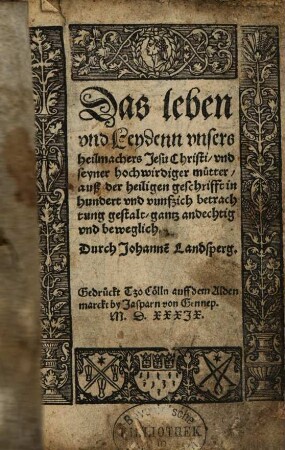 Das leben
vnd Leydenn vnsers
heilmachers Jesu Christi/ vnd
seyner hochwirdiger mütter/
auß der heiligen geschrifft in
hundert vnd vunfftzich betrach
tung gestalt/ gantz andechtig
vnd beweglich.
Durch Johannē Landsperg.
Gedrückt Tzo Cölln auff dem Alden
marckt by Jasparn von Gennep.
M. D. XXXIX.
BIBLIOTHEK